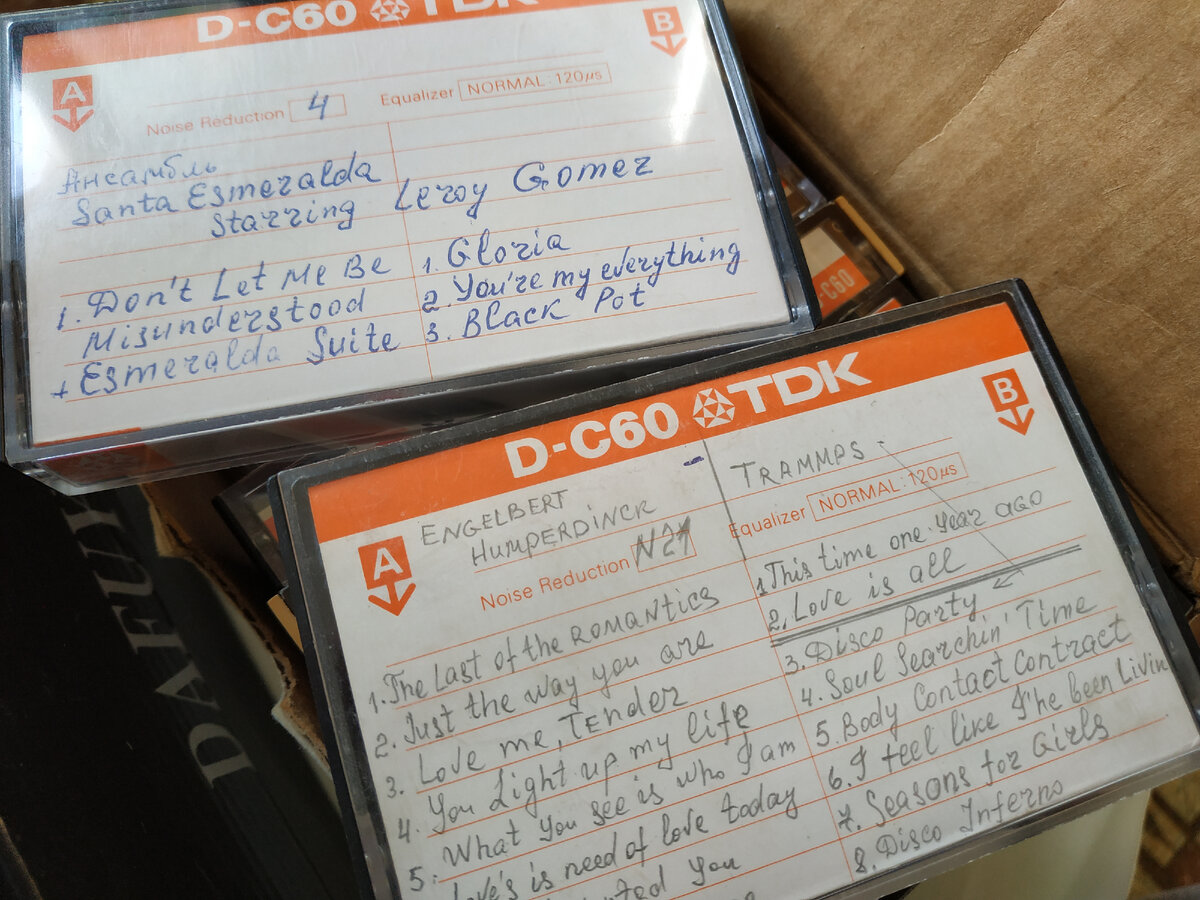 D-C60 TDK
A
B
Noise Reduction 4
Equalizer NORMAL:120µs
Ансамбль
Santa Esmeralda
Starring Leroy Gomez
1. Don't Let Me Be
Misunderstood
+ Esmeralda Suite
1. Gloria
2. You're my everything
3. Black Pot
-C60
D-C60 TDK
A
B
ENGELBERT
HUMPERDINCK
Noise Reduction N21
TRAMMPS
Equalizer NORMAL:120µs
1. The Last of the ROMANTICS
2. Just the way you are
3. Love me, Tender
4. You Light up my life
5. What you see is who I am
Love's is need of love today
you
1. This time one year ago
2. Love is all
3. Disco Party
4. Soul Searchin' Time
5. Body Contact Contract
6. I feel like I'he been Livin
7. Seasons for Girls
8. Disco Inferno
DAFU